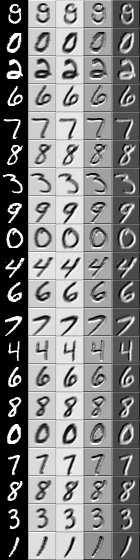 8 8 8 8 8
0 0 0 0 0
2 2 2 2 2
6 6 6 6 6
7 7 7 7 7
8 8 8 8 8
3 3 3 3 3
9 9 9 9 9
0 0 0 0 0
4 4 4 4 4
6 6 6 6 6
7 7 7 7 7
4 4 4 4 4
6 6 6 6 6
8 8 8 8 8
0 0 0 0 0
7 7 7 7 7
8 8 8 8 8
3 3 3 3 3
1 1 1 1 1